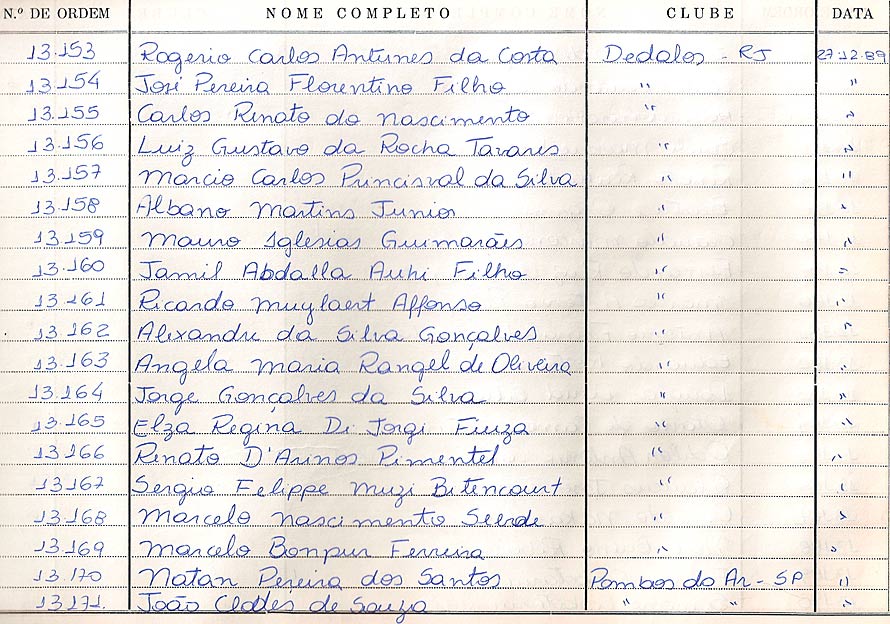 N.º DE ORDEM NOME COMPLETO CLUBE DATA
13.153 Rogerio Carlos Antunes da Costa Dedalos - RJ 27.12.89
13.154 José Pereira Florentino Filho " "
13.155 Carlos Renato do nascimento " "
13.156 Luiz Gustavo da Rocha Tavares " "
13.157 Marcio Carlos Principal da Silva " "
13.158 Albano Martins Junior " "
13.159 Mauro Iglesias Guimarães " "
13.160 Jamil Abdalla Filho " "
13.161 Ricardo Muylaert Affonso " "
13.162 Alexandre da Silva Gonçalves " "
13.163 Angela Maria Rangel de Oliveira " "
13.164 Jorge Gonçalves da Silva " "
13.165 Elza Regina Di Jorgi Fiuza " "
13.166 Renato D'Arinos Pimentel " "
13.167 Sergio Felippe Muzi Bitencourt " "
13.168 Marcelo nascimento " "
13.169 Marcelo Ferreira " "
13.170 Natan Pereira dos Santos Pombos do Ar - SP "
13.171. João de Souza " " "